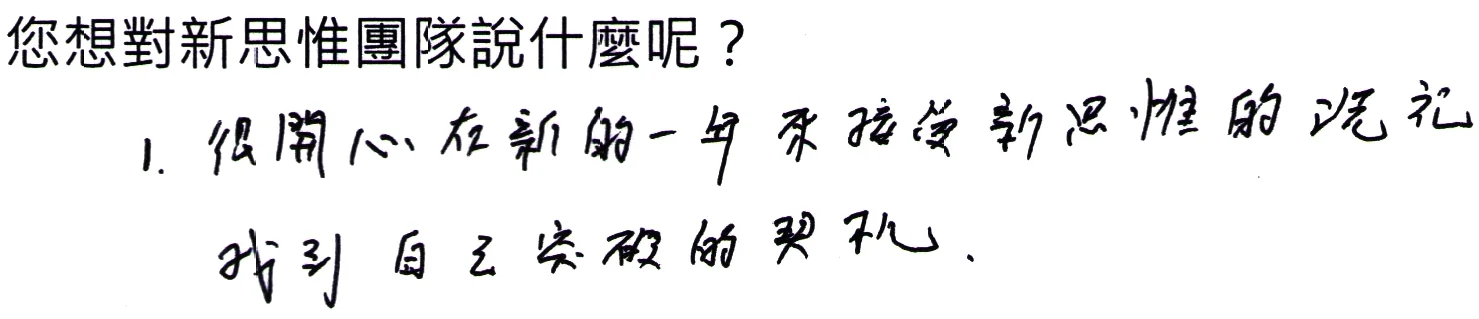 您想對新思惟團隊說什麼呢？
1. 很開心在新的一年來接受新思惟的洗礼
找到自己突破的契机.